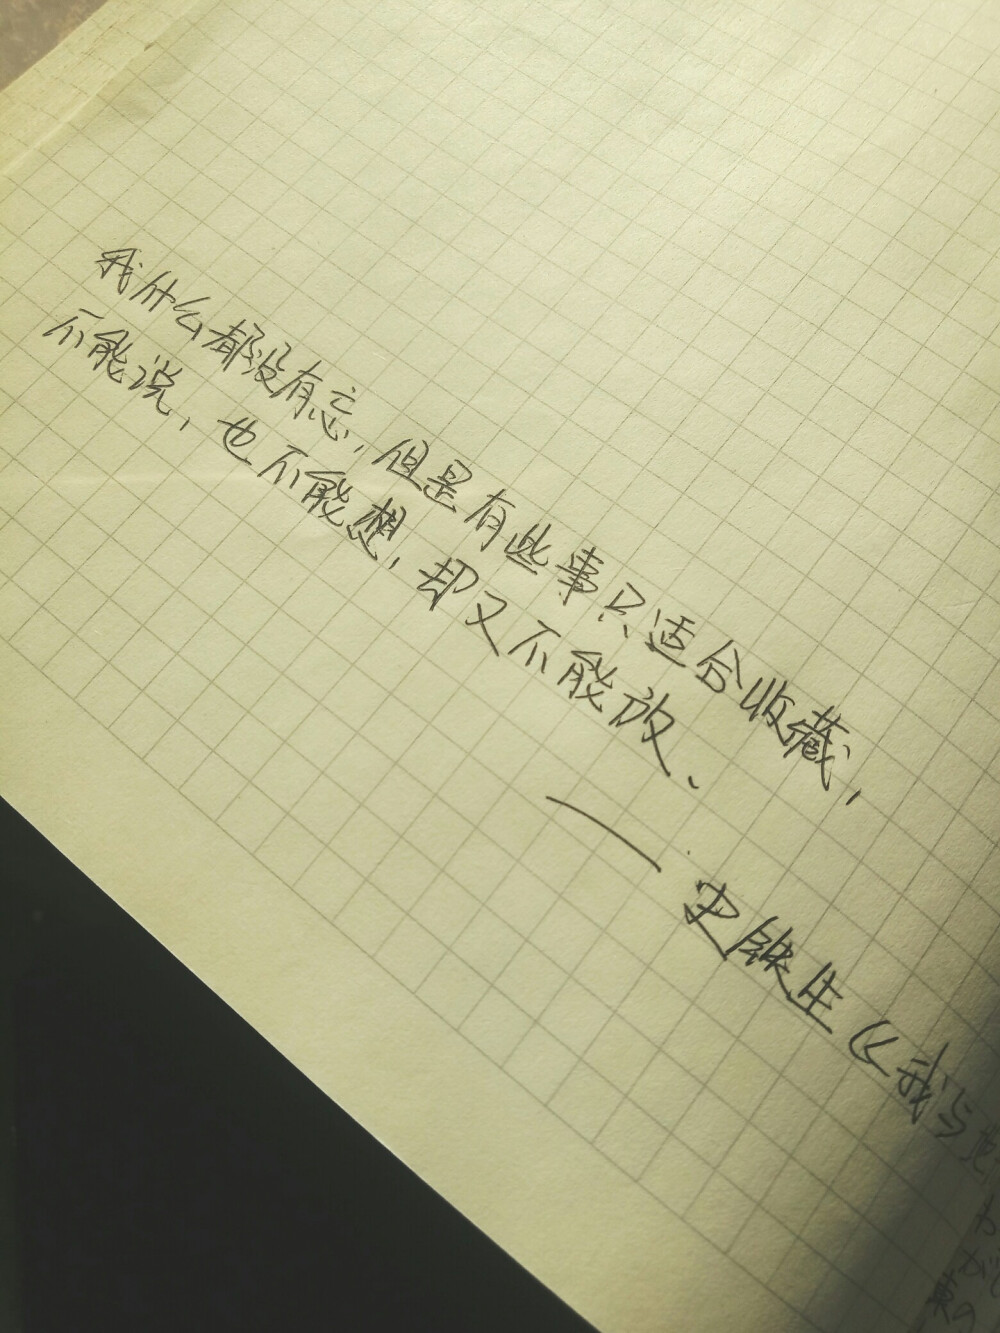 我什么都没有忘，但是有些事只适合收藏，
不能说，也不能想，却又不能放、
——史铁生《我与